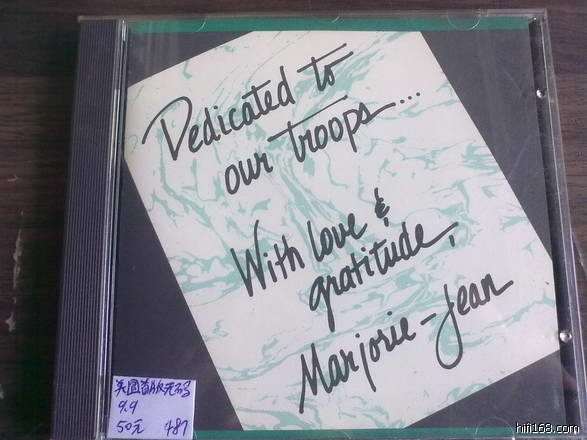 Dedicated to
our troops...
With love &
gratitude,
Marjorie-Jean
美国首版无码
9.9
50元 487
hifi168.com